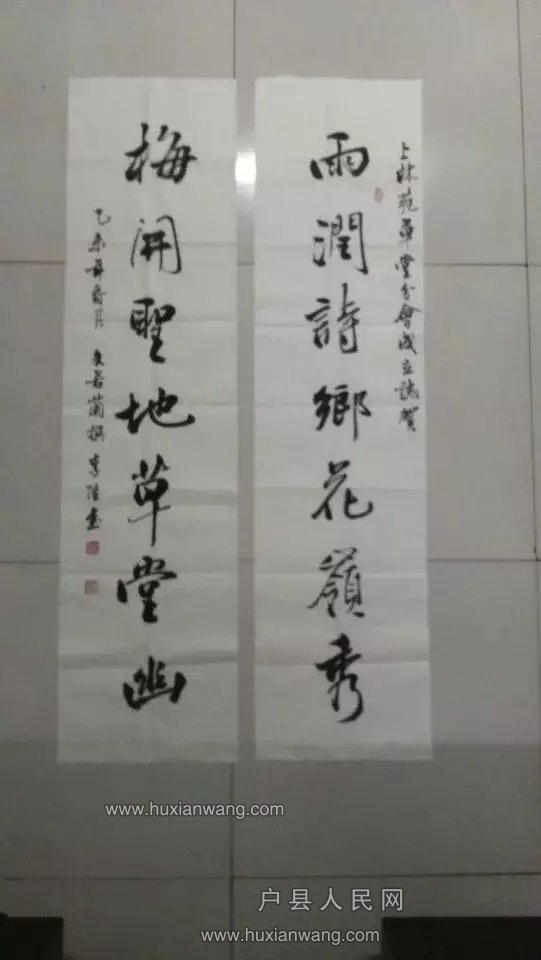 上林苑草堂分會成立誌賀
雨潤詩鄉花嶺秀
梅開聖地草堂幽
乙未年
月
蘭撰 李
書
www.huxianwang.com
户县人民网
www.huxianwang.com